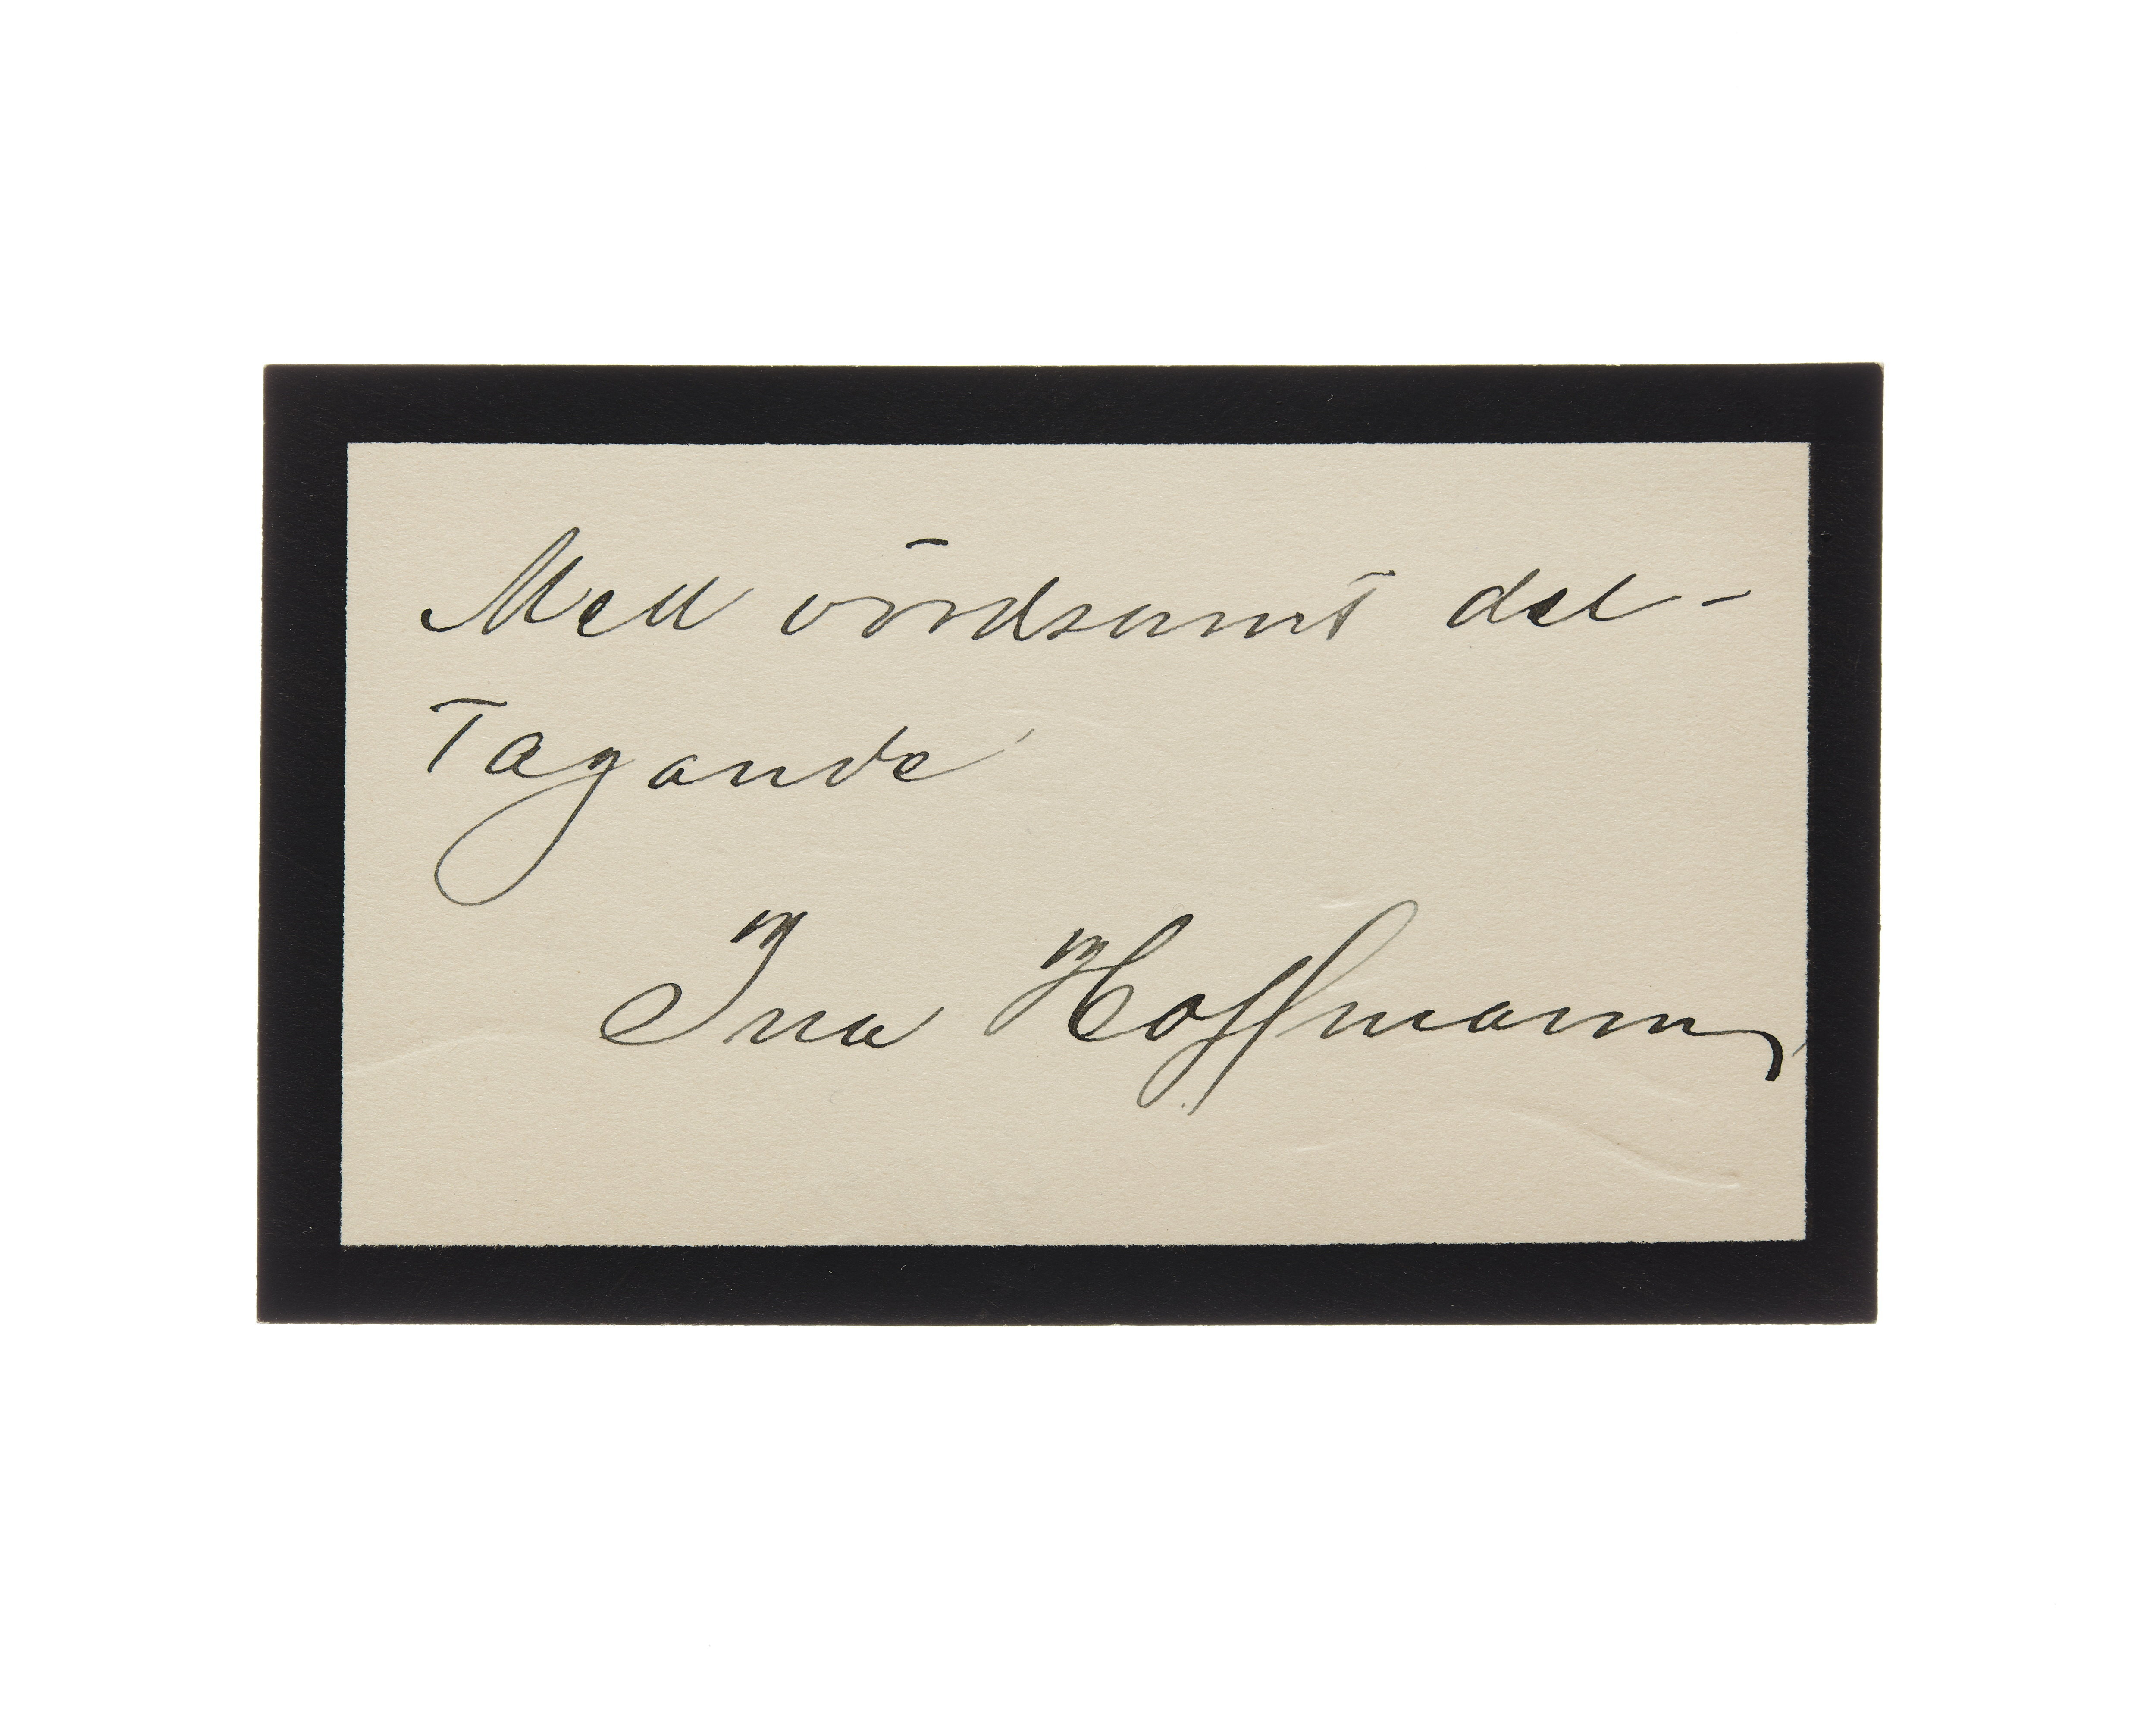 Med vördsamt del-
tagande
Ina Hoffmann